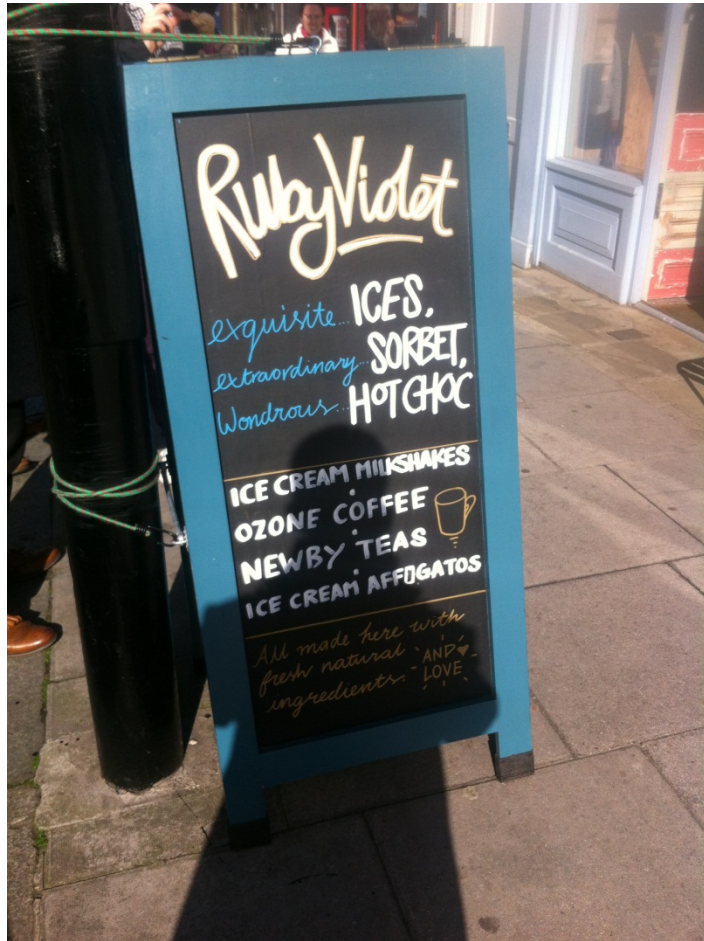 Ruby Violet
exquisite... ICES,
extraordinary... SORBET,
Wondrous... HOT CHOC
ICE CREAM MILKSHAKES
OZONE COFFEE
NEWBY TEAS
ICE CREAM AFFOGATOS
All made here with
fresh natural
ingredients.
AND
LOVE